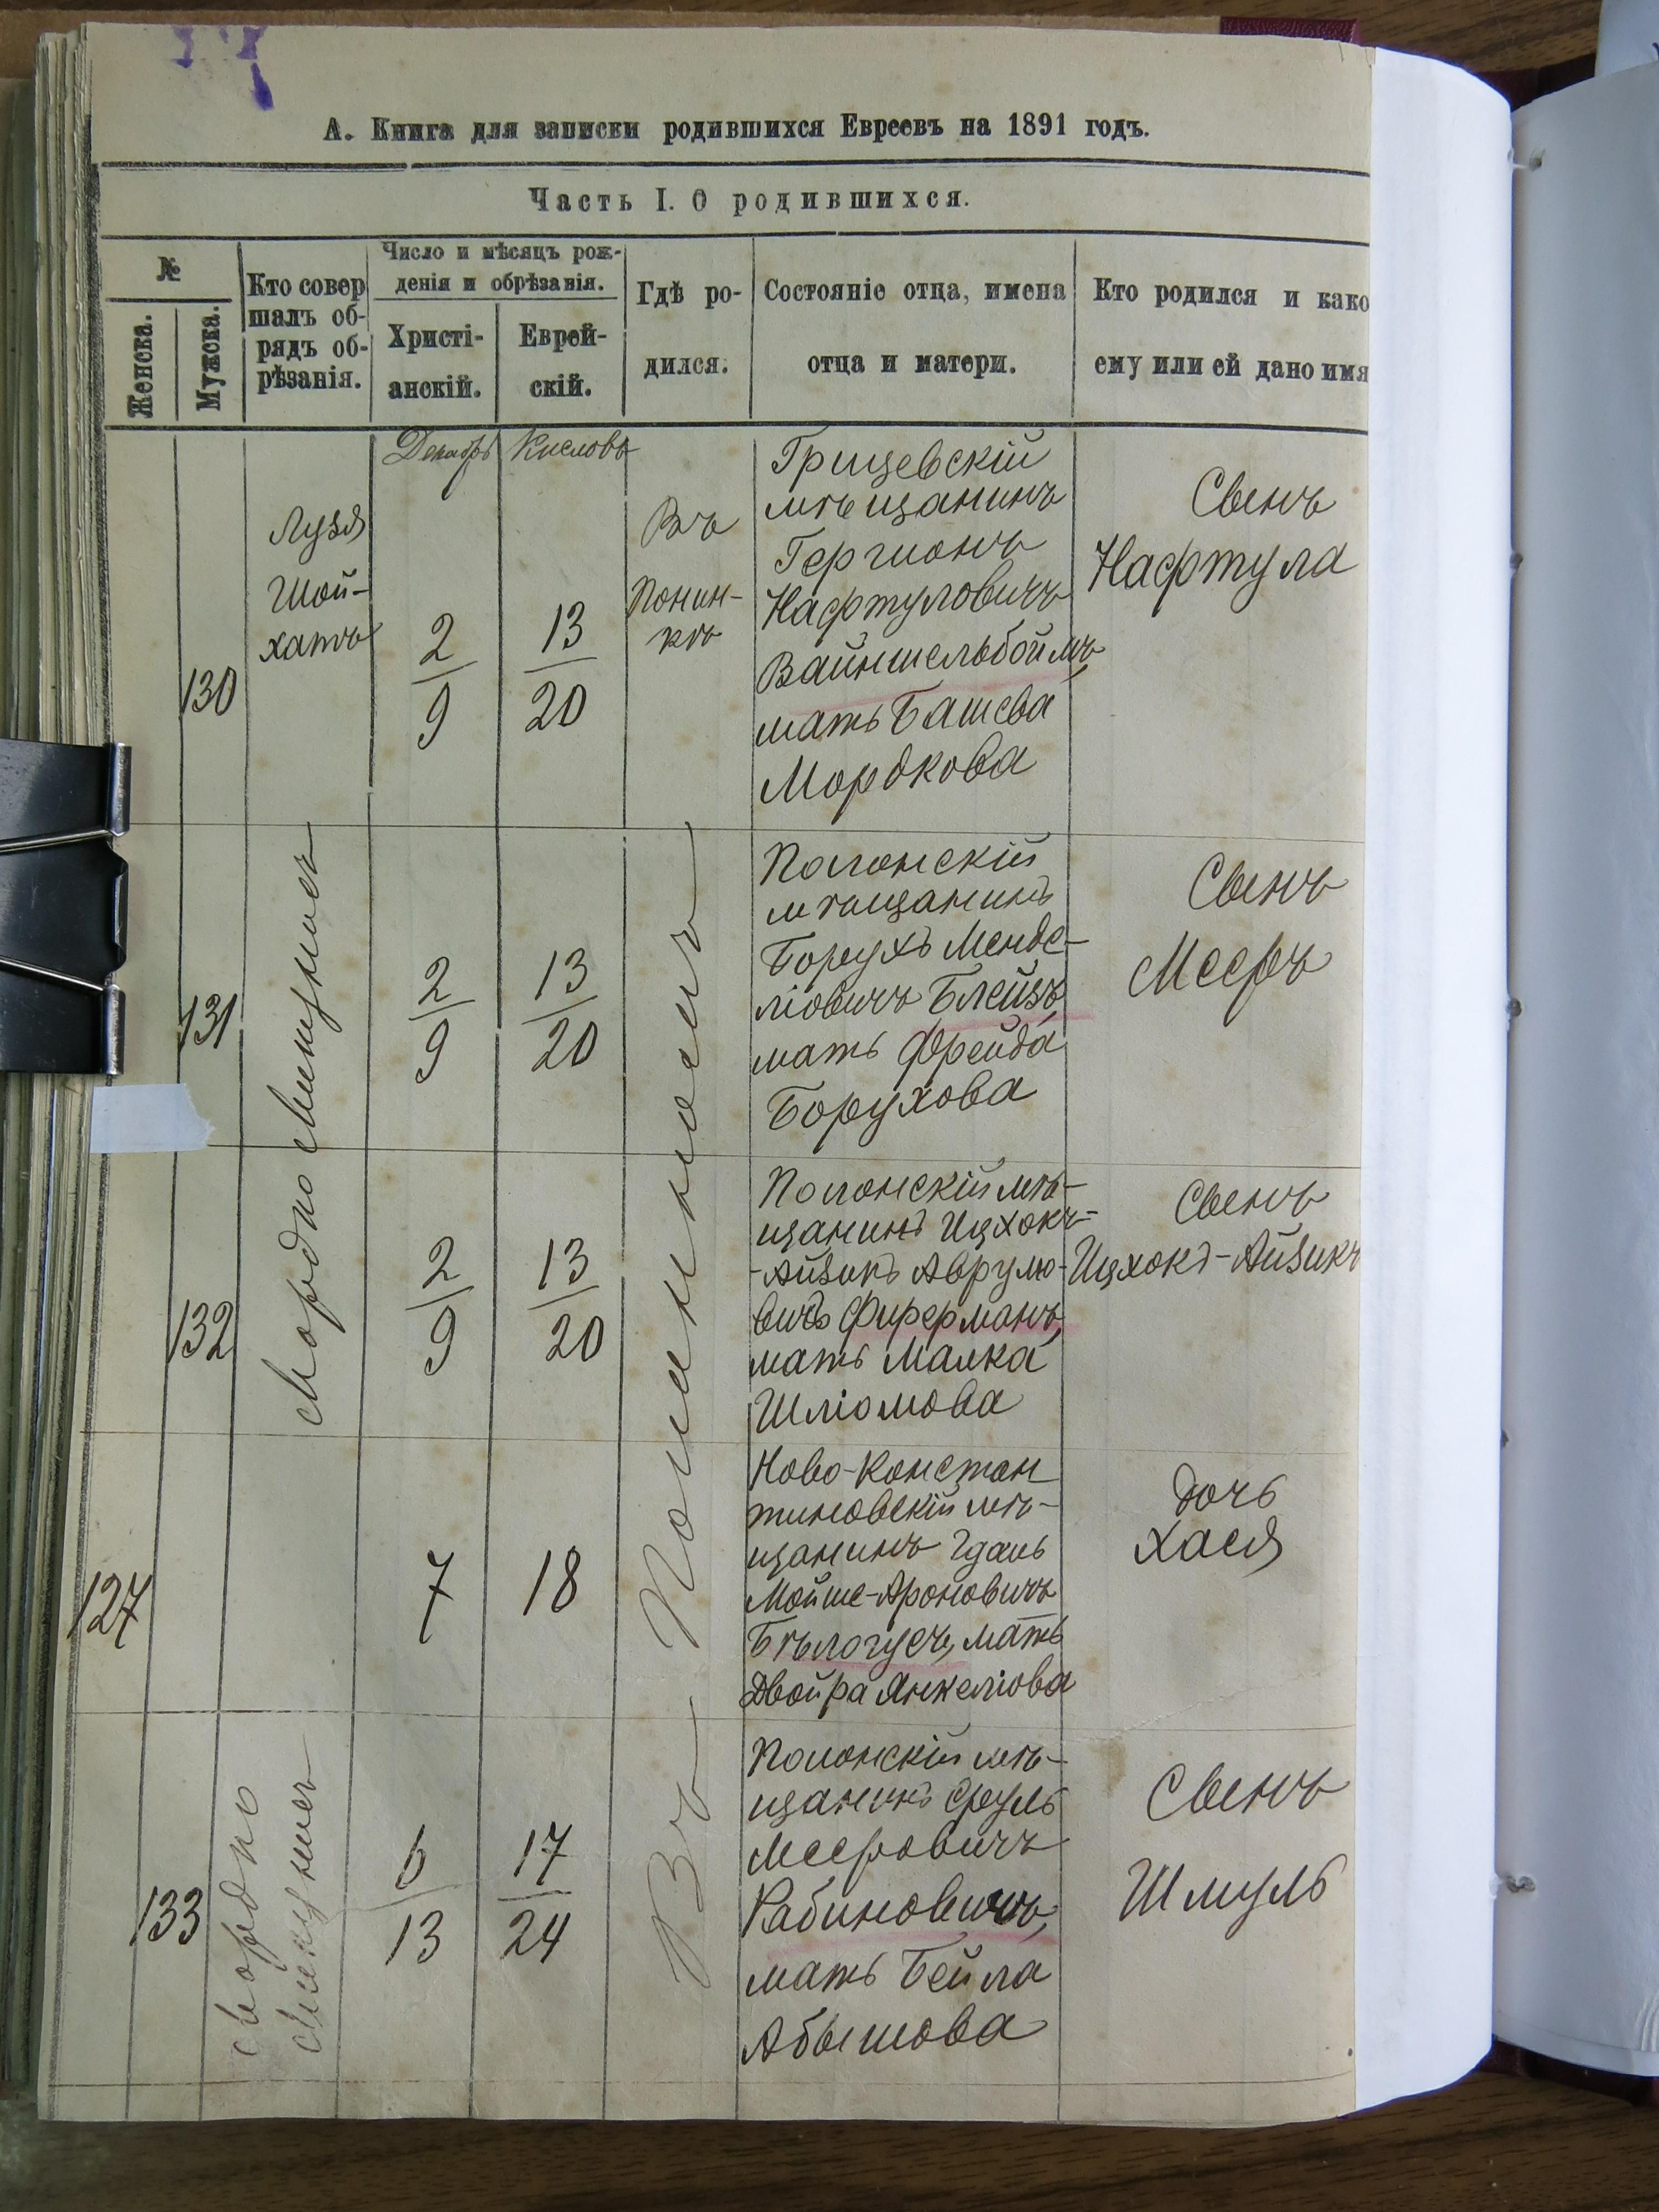 А. Книга для записки родившихся Евреевъ на 1891 годъ.
Часть I. О родившихся.
№
Женска.
Мужска.
Кто совер
шалъ об-
рядъ об-
рѣзанія.
Число и мѣсяцъ рож-
денія и обрѣзанія.
Христі-
анскій.
Еврей-
скій.
Гдѣ ро-
дился.
Состояніе отца, имена
отца и матери.
Кто родился и како
ему или ей дано имя
Декабрь
Кисловъ
130
Лузя
Шой-
хатъ
2
9
13
20
Въ
Понин-
кѣ
Грицевскій
мѣщанинъ
Гершонъ
Нафтуловичъ
Вайншельбоймъ,
мать Башева
Мордкова
Сынъ
Нафтула
131
Мордко
2
9
13
20
Въ Полонномъ
Полонскій
мѣщанинъ
Борухъ Менде-
ліовичъ Блейзъ,
мать Фрейда
Борухова
Сынъ
Мееръ
132
2
9
13
20
Полонскій мѣ-
щанинъ Ицхокъ-
-Айзикъ Аврумо-
вичъ Фирерманъ,
мать Малка
Шліомова
Сынъ
Ицхокъ-Айзикъ
127
7
18
Ново-Констан
тиновскій мѣ-
щанинъ Гдаль
Мойше-Ароновичъ
Бѣлогусъ, мать
Двойра Янкеліова
дочь
Хася
133
Мордко
6
13
17
24
Полонскій мѣ-
щанинъ Сруль
Мееровичъ
Рабиновичъ,
мать Бейла
Абышова
Сынъ
Шмуль